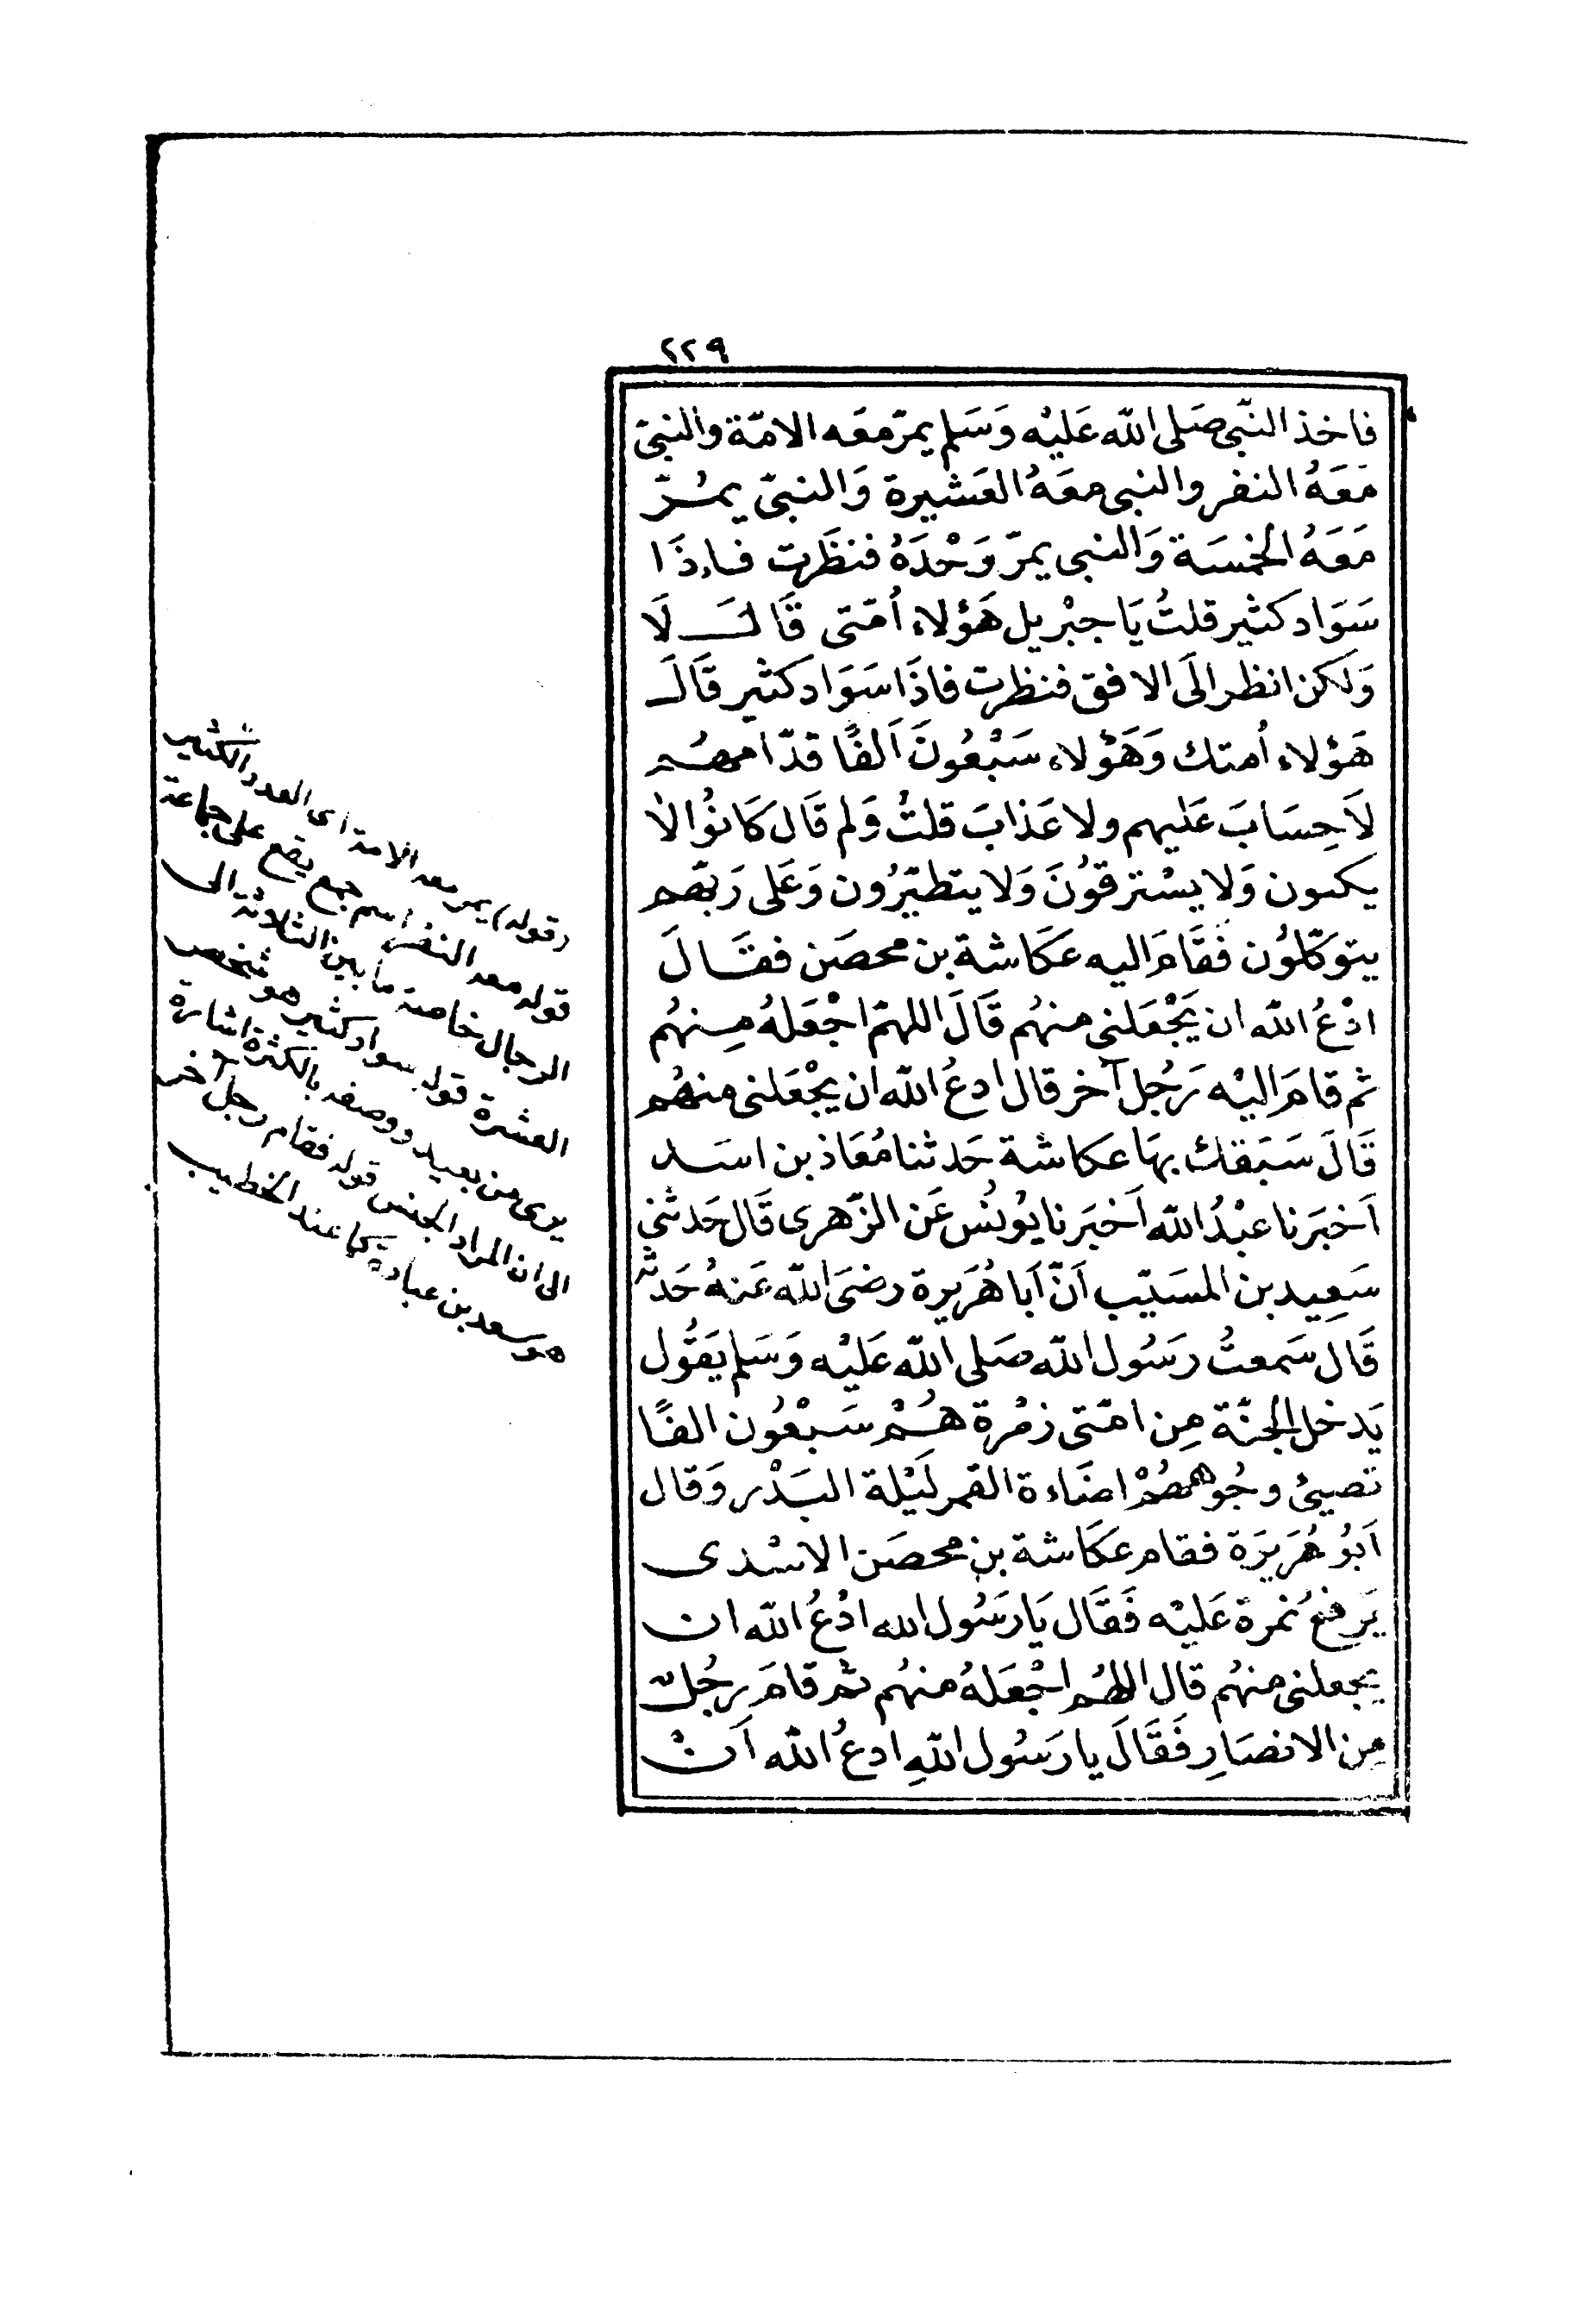 ٢٢٩
فاخذ النّبى صَلى الله عَليْه وَسَلم يمرّ معَه الامّة والنبىّ
مَعَهُ النفر والنبى معَهُ العَشيرة وَالنبىّ يمُرّ
مَعَهُ الخمسَة وَالنبى يمرّ وَحْدَهُ فنظَرت فاذَا
سَوَاد كثير قلتُ يَا جبْريل هَؤلاء اُمّتى قَالَ لَا
وَلكن انظر الَى الافق فنظرت فاذَا سَوَاد كثير قَالَ
هَؤلاء اُمتك وَهَؤلاء سَبْعُونَ اَلفًا قدّامهُم
لَا حِسَابَ عَليهم ولا عَذابَ قلتُ وَلم قَال كَانوُا لا
يكتوون وَلا يسْترقوُنَ وَلا يتطيّرُون وَعَلى رَبّهم
يتوَكّلوُن فَقَامَ اليه عكَاشة بن محصَن فقَالَ
ادْعُ الله ان يَجْعَلنى منهُم قَالَ اللهمّ اجْعَلهُ مِنهُم
ثم قامَ اليْه رَجُل آخر قال ادعُ الله ان يجْعَلنى منهُم
قَالَ سَبَقك بهَا عكاشة حَدثنا مُعَاذ بن اسَد
اَخبَرنا عبْدُ الله اَخبَرنا يوُنُس عَن الزّهرى قَال حَدثنى
سَعِيد بن المسَيّب اَنّ اَبا هُرَيرة رضىَ الله عَنهُ حَدثه
قَال سَمعتُ رسَوُل الله صَلى الله عَليْه وَسَلم يقَوُل
يَدخل الجنّة مِن امّتى زمْرة هُمْ سَبْعُون الفًا
تضيئ وجُوههُمْ اضَاءة القمر لَيْلة البَدْر وَقال
اَبوُ هُرَيرَة فقام عكَاشة بن محصَن الاسْدى
يَرفعُ نمرة عَليْه فَقَال يَا رسَوُل الله ادْعُ الله ان
يجعلنى منهُم قال اللهُم اجْعَلهُ منهُم ثم قامَ رجُل
مِن الانصَارِ فَقَالَ يا رسَوُل اللهِ ادعُ الله اَنْ
(قوله) يمر معه الامة اى العدد الكثير
قوله معه النفر اسم جمع يقع على جماعة
الرجال خاصة ما بين الثلاثة الى
العشرة قوله سواد كثير هو شخص
يرى من بعيد ووصفه بالكثرة اشارة
الى ان المراد الجنس قوله فقام رجل آخر
هو سعد بن عبادة كما عند الخطيب